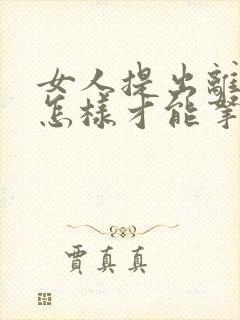 女人提出離
怎樣才能拿
賈真真